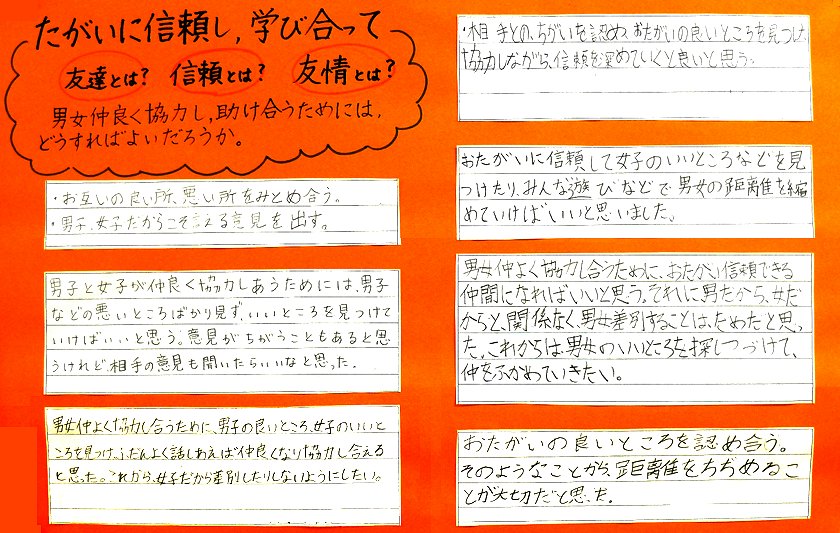 たがいに信頼し,学び合って
友達とは? 信頼とは? 友情とは?
男女仲良く協力し,助け合うためには,
どうすればよいだろうか。
・お互いの良い所、悪い所をみとめ合う。
・男子、女子だからこそ言える意見を出す。
男子と女子が仲良く協力しあうためには、男子
などの悪いところばかり見ず、いいところを見つけて
いけばいいと思う。意見がちがうこともあると思
うけれど、相手の意見も聞いたらいいなと思った。
男女仲よく協力し合うために、男子の良いところ、女子のいいと
ころを見つけ、ふだんよく話しあえば仲良くなり協力し合える
と思った。これから、女子だから差別したりしないようにしたい。
・相手との、ちがいを認め、おたがいの良いところを見つけ、
協力しながら、信頼を深めていくと良いと思う。
おたがいに信頼して女子のいいところなどを見
つけたり、みんな遊びなどで男女の距離を縮
めていけばいいと思いました。
男女仲よく協力し合うために、おたがい信頼できる
仲間になればいいと思う。それに男だから、女だ
からと、関係なく、男女差別することは、だめだと思っ
た。これからは、男女のいいところを探しつづけて、
仲をふかめていきたい。
おたがいの良いところを認め合う。
そのようなことから、距離をちぢめるこ
とが大切だと思った。